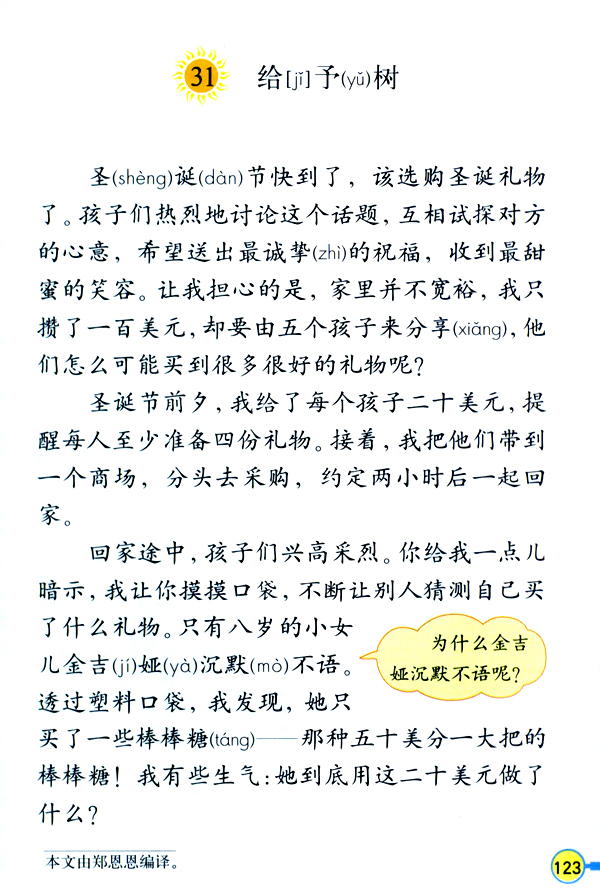 31 给[jǐ]予(yǔ)树
圣(shèng)诞(dàn)节快到了，该选购圣诞礼物
了。孩子们热烈地讨论这个话题，互相试探对方
的心意，希望送出最诚挚(zhì)的祝福，收到最甜
蜜的笑容。让我担心的是，家里并不宽裕，我只
攒了一百美元，却要由五个孩子来分享(xiǎng)，他
们怎么可能买到很多很好的礼物呢？
圣诞节前夕，我给了每个孩子二十美元，提
醒每人至少准备四份礼物。接着，我把他们带到
一个商场，分头去采购，约定两小时后一起回
家。
回家途中，孩子们兴高采烈。你给我一点儿
暗示，我让你摸摸口袋，不断让别人猜测自己买
了什么礼物。只有八岁的小女
儿金吉(jí)娅(yà)沉默(mò)不语。
透过塑料口袋，我发现，她只
买了一些棒棒糖(táng)——那种五十美分一大把的
棒棒糖！我有些生气：她到底用这二十美元做了
什么？
为什么金吉
娅沉默不语呢？
本文由郑恩恩编译。
123